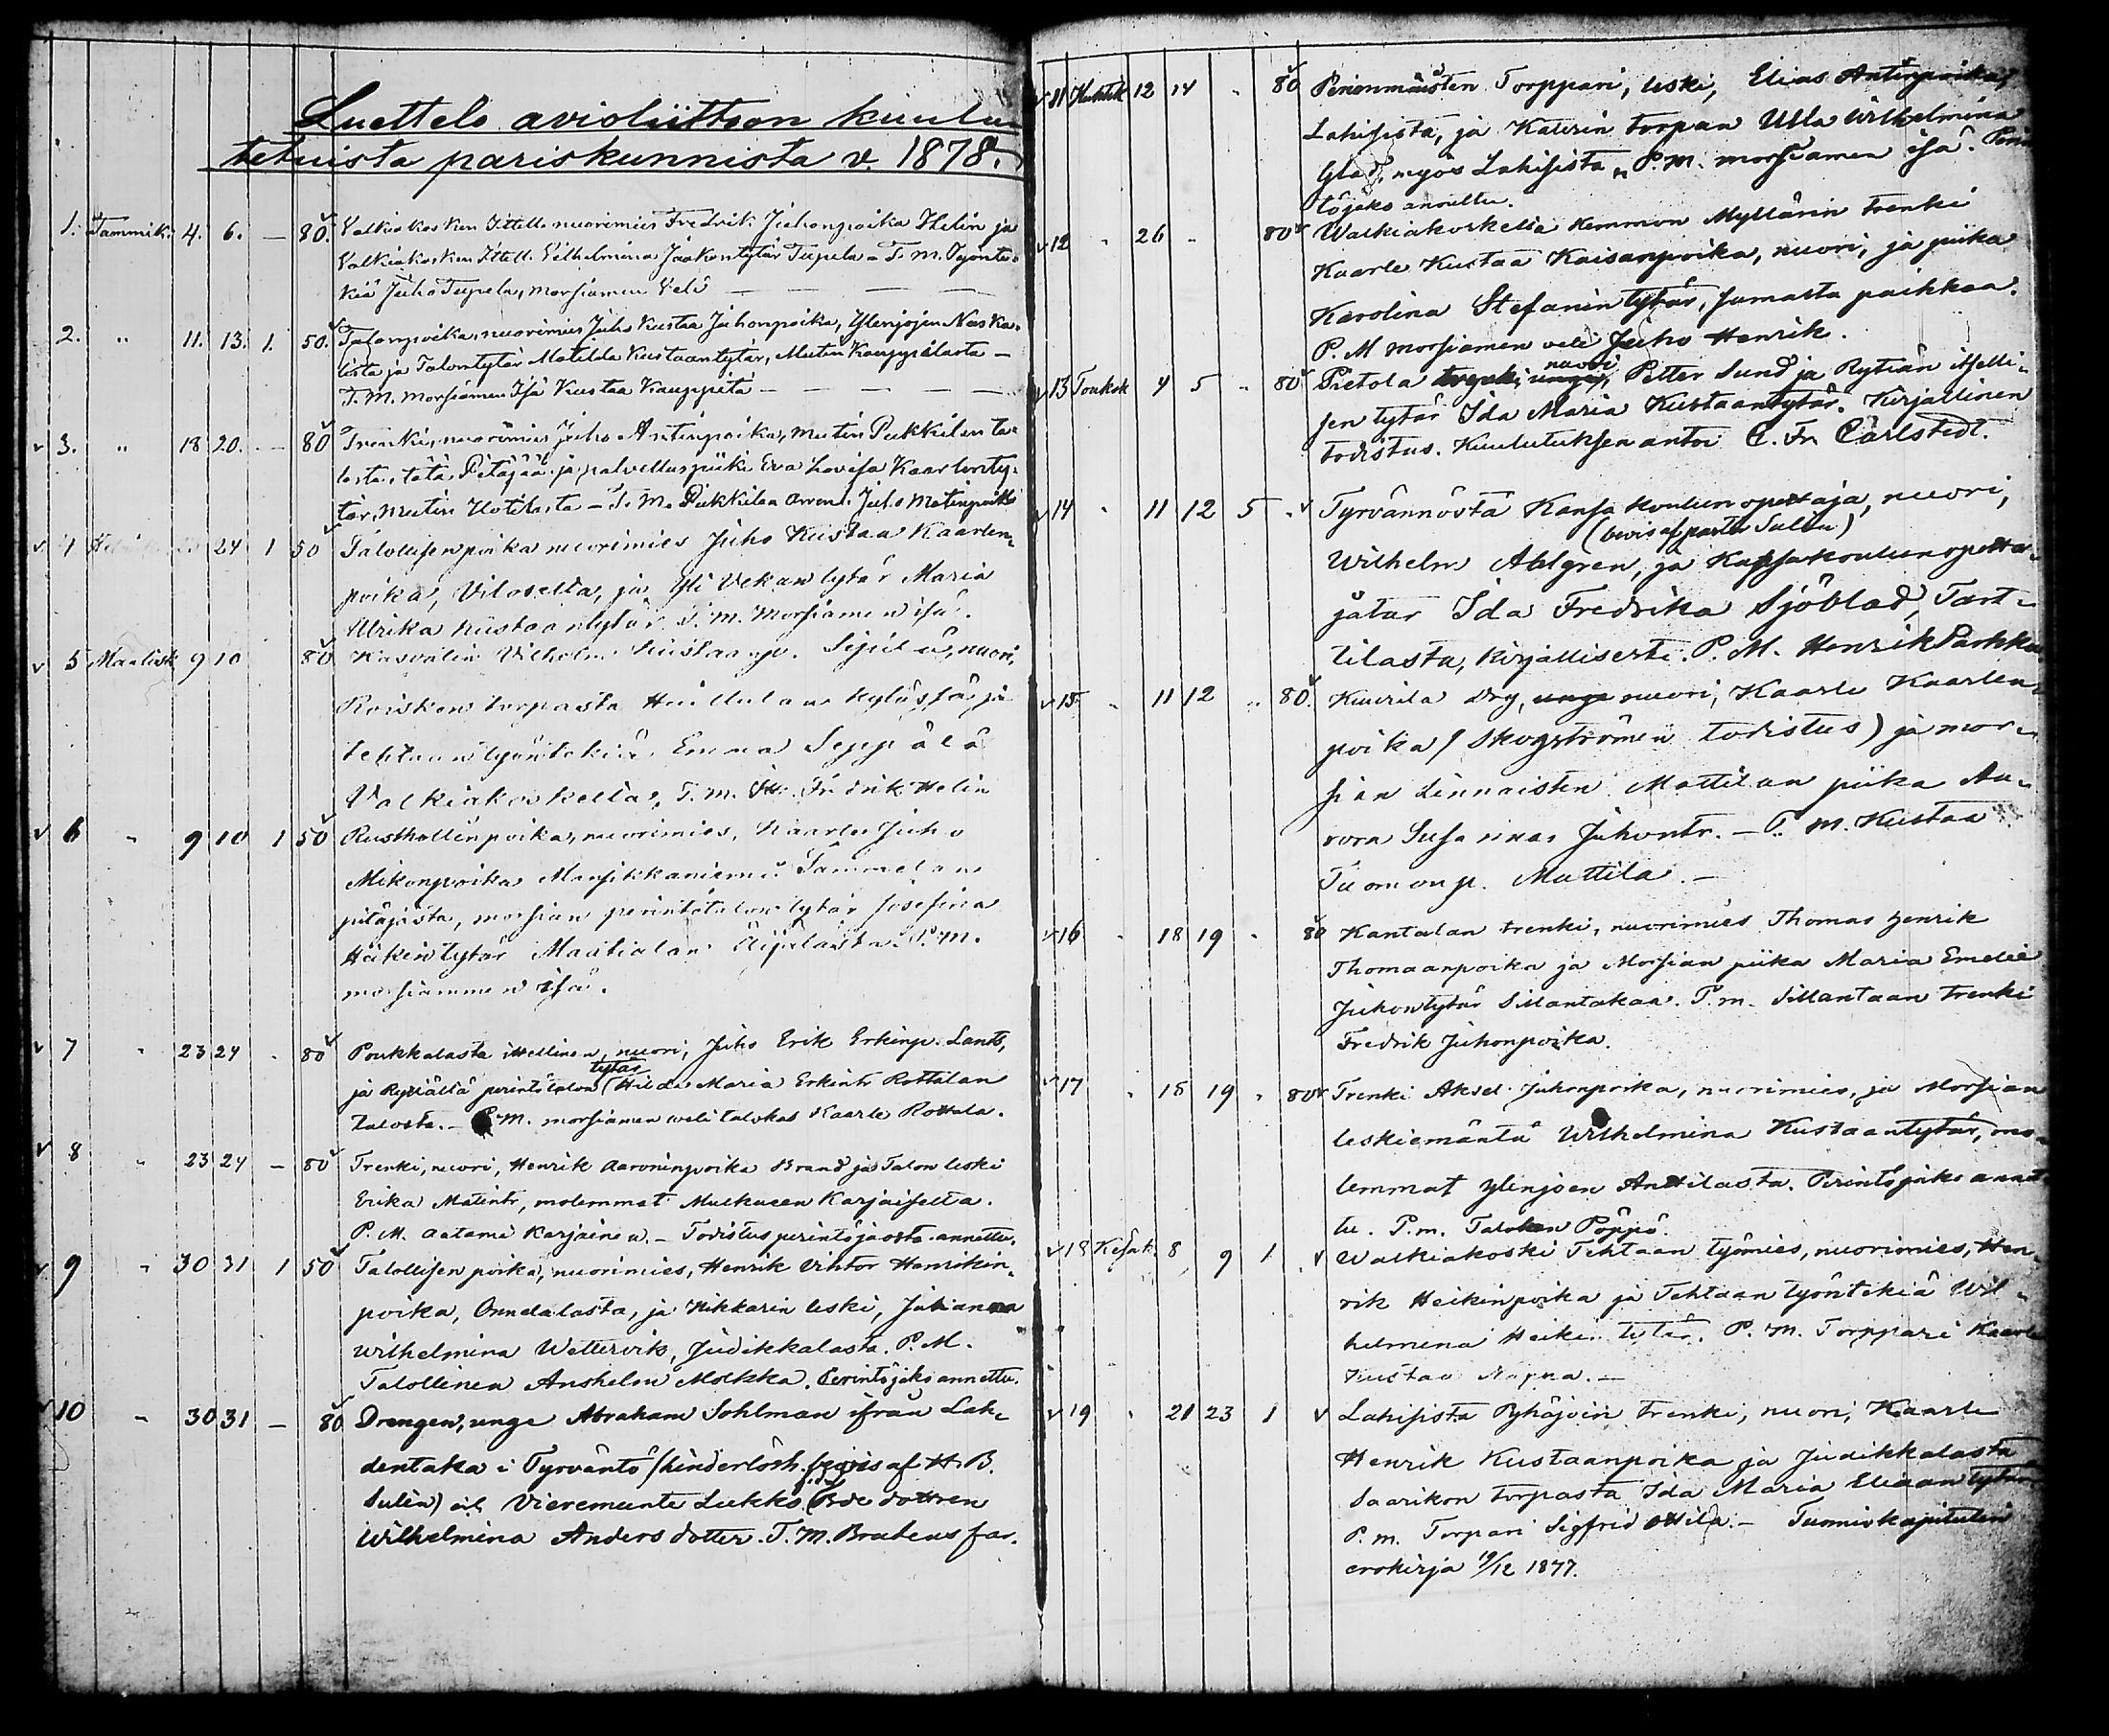 Luettelo avioliittoon kuulu-
tetuista pariskunnista v. 1878.
1. Tammik. 4. 6. — 80. Valkiakosken Ittell. nuorimies Fredrik Juhonpoika Helin ja
Valkiakosken Ittell. Vilhelmina Jaakontytär Tupela - T. M. Työnte-
kiä Juho Tupela, morsiamen Veli
2. " 11. 13. 1. 50. Talonpoika, nuorimies Juho Kustaa Juhonpoika, Ylenjojen Naska-
lista ja Talontytär Matilda Kustaantytär, Mutin Kauppilasta —
T. M. Morsiamen Isä Kustaa Kauppila
3. " 18 20. — 80 Trenki, nuorimies Juho Antinpoika, Mutin Pukkilan ta-
losta, tätä Pitäjää ja palvelluspiika Eva Lovisa Kaarlonty-
tär, Mutin Uotilasta - T. M. Pukkilan Juho Matinpoika
4 24 1 50 Talollisenpoika nuorimies Juho Kustaa Kaarlen-
poika, Vilosella, ja Yli Vekan tytär Maria
Ulrika Kustaantytär T. M. Morsiamen isä.
5 Maalisk 9 10 80 Vilhelm Kustaanp. nuori,
Roisken torpasta Huittulan kylässä, ja
tehtaan työntekiä Emma Seppälä
Valkiakoskella, T. M. Fredrik Helin
6 " 9 10 1 50 Rusthollin poika, nuorimies, Kaarle Juho
Mikonpoika Mansikkaniemi Sammelan
pitäjästä, morsian perintötalon tytär Josefina
Heikintytär Maatialan Äijälästä. P. M.
morsiammen isä.
7 " 23 24 - 80 Poukkalasta ittellinen, nuori, Juho Erik Erkinp. Lants,
tytär
ja Rydiältä perintötalon (Hilda Maria Erkintr Rottalan
talosta. - P. M. morsiamen veli talokas Kaarle Rottala.
8 " 23 24 — 80 Trenki, nuori, Henrik Aaroninpoika Brand ja Talon leski
Erika Matintr, molemmat Mulkucen Karjaiselta.
P. M. Aatami Karjainen. - Todistus perintöjaosta annettu.
9 " 30 31 1 50 Talollisen poika, nuorimies, Henrik Viktor Henrikin-
poika, Onnelalasta, ja Nikkarin leski, Juhanna
Wilhelmina Wettervik, Judikkalasta. P. M.
Talollinen Anshelm Molkka. Perintöjako annettu.
10 " 30 31 — 80 Drengen, unge Abraham Sohlman ifrån Lah-
dentaka i Tyrväntö (hinderlösh. bevis af H. B.
Sulin) och Vieremunte Lukko dottren
Wilhelmina Anders dotter. T. M. Brudens far.
11 Huhtik 12 14 " 80 Torppari, leski, Elias Antinpoika,
Lahisista, ja Kaurin torpan Ulla Wilhelmina
Glad, myös Lahisista, P. M. morsiamen isä. Perin
töjako annettu.
12 " 26 " 80 Walkiakoskella Kemmon Myllärin trenki
Kaarle Kustaa Kaisanpoika, nuori, ja piika
Karolina Stefanintytär, samasta paikkaa.
P. M morsiamen veli Juho Henrik.
nuori
13 Toukok 4 5 " 80 Pietola unge, Petter Sund ja Rytiän itselli-
sen tytär Ida Maria Kustaantytär. Kirjallinen
todistus. Kuulutuksen antoi C. Fr. Carlstedt.
14 " 11 12 5 " Tyrvännöstä Kansakoulun opettaja, nuori,
(bevis af pastor Sulin)
Wilhelm Ahlgren, ja Kansakoulun opetta-
jatar Ida Fredrika Sjöblad, Tart-
tilasta, Kirjallisesti. P. M. Henrik
15 " 11 12 " 80. Kuurila drg, unge nuori, Kaarle Kaarlen-
poika (Skogströmin todistus) ja mor-
sian Linnaisten Mattilan piika Au-
rora Susanna Juhontr. — P. M. Kustaa
Tuomonp. Mattila. —
16 " 18 19 " 80 Kantalan trenki, nuorimies Thomas Henrik
Thomaanpoika ja Morsian piika Maria Emelie
Juhontytär Sillantakaa. P. m. Sillantaan trenki
Fredrik Juhonpoika.
17 " 18 19 " 80 Trenki Aksel Juhonpoika, nuorimies, ja Morsian
leskiemäntä Wilhelmina Kustaantytär, mo-
lemmat Ylenjoen Anttilasta. Perintöjako annet-
tu. P. m. Talokas Pöppö.
18 Kesäk. 8 9 1 Walkiakoski Tehtaan työmies, nuorimies, Hen-
rik Heikinpoika ja Tehtaan työntekiä Wil-
helmina Heikintytär. P. M. Torppari Kaarle
Kustaa
19 " 21 23 1 Lahisista Pyhäjoin trenki, nuori, Kaarle
Henrik Kustaanpoika ja Judikkalasta
Saarikon torpasta Ida Maria Eliaantytär
P. m. Torpari Sigfrid Ottila. — Tuomiokapitulin
erokirja 19/12 1877.